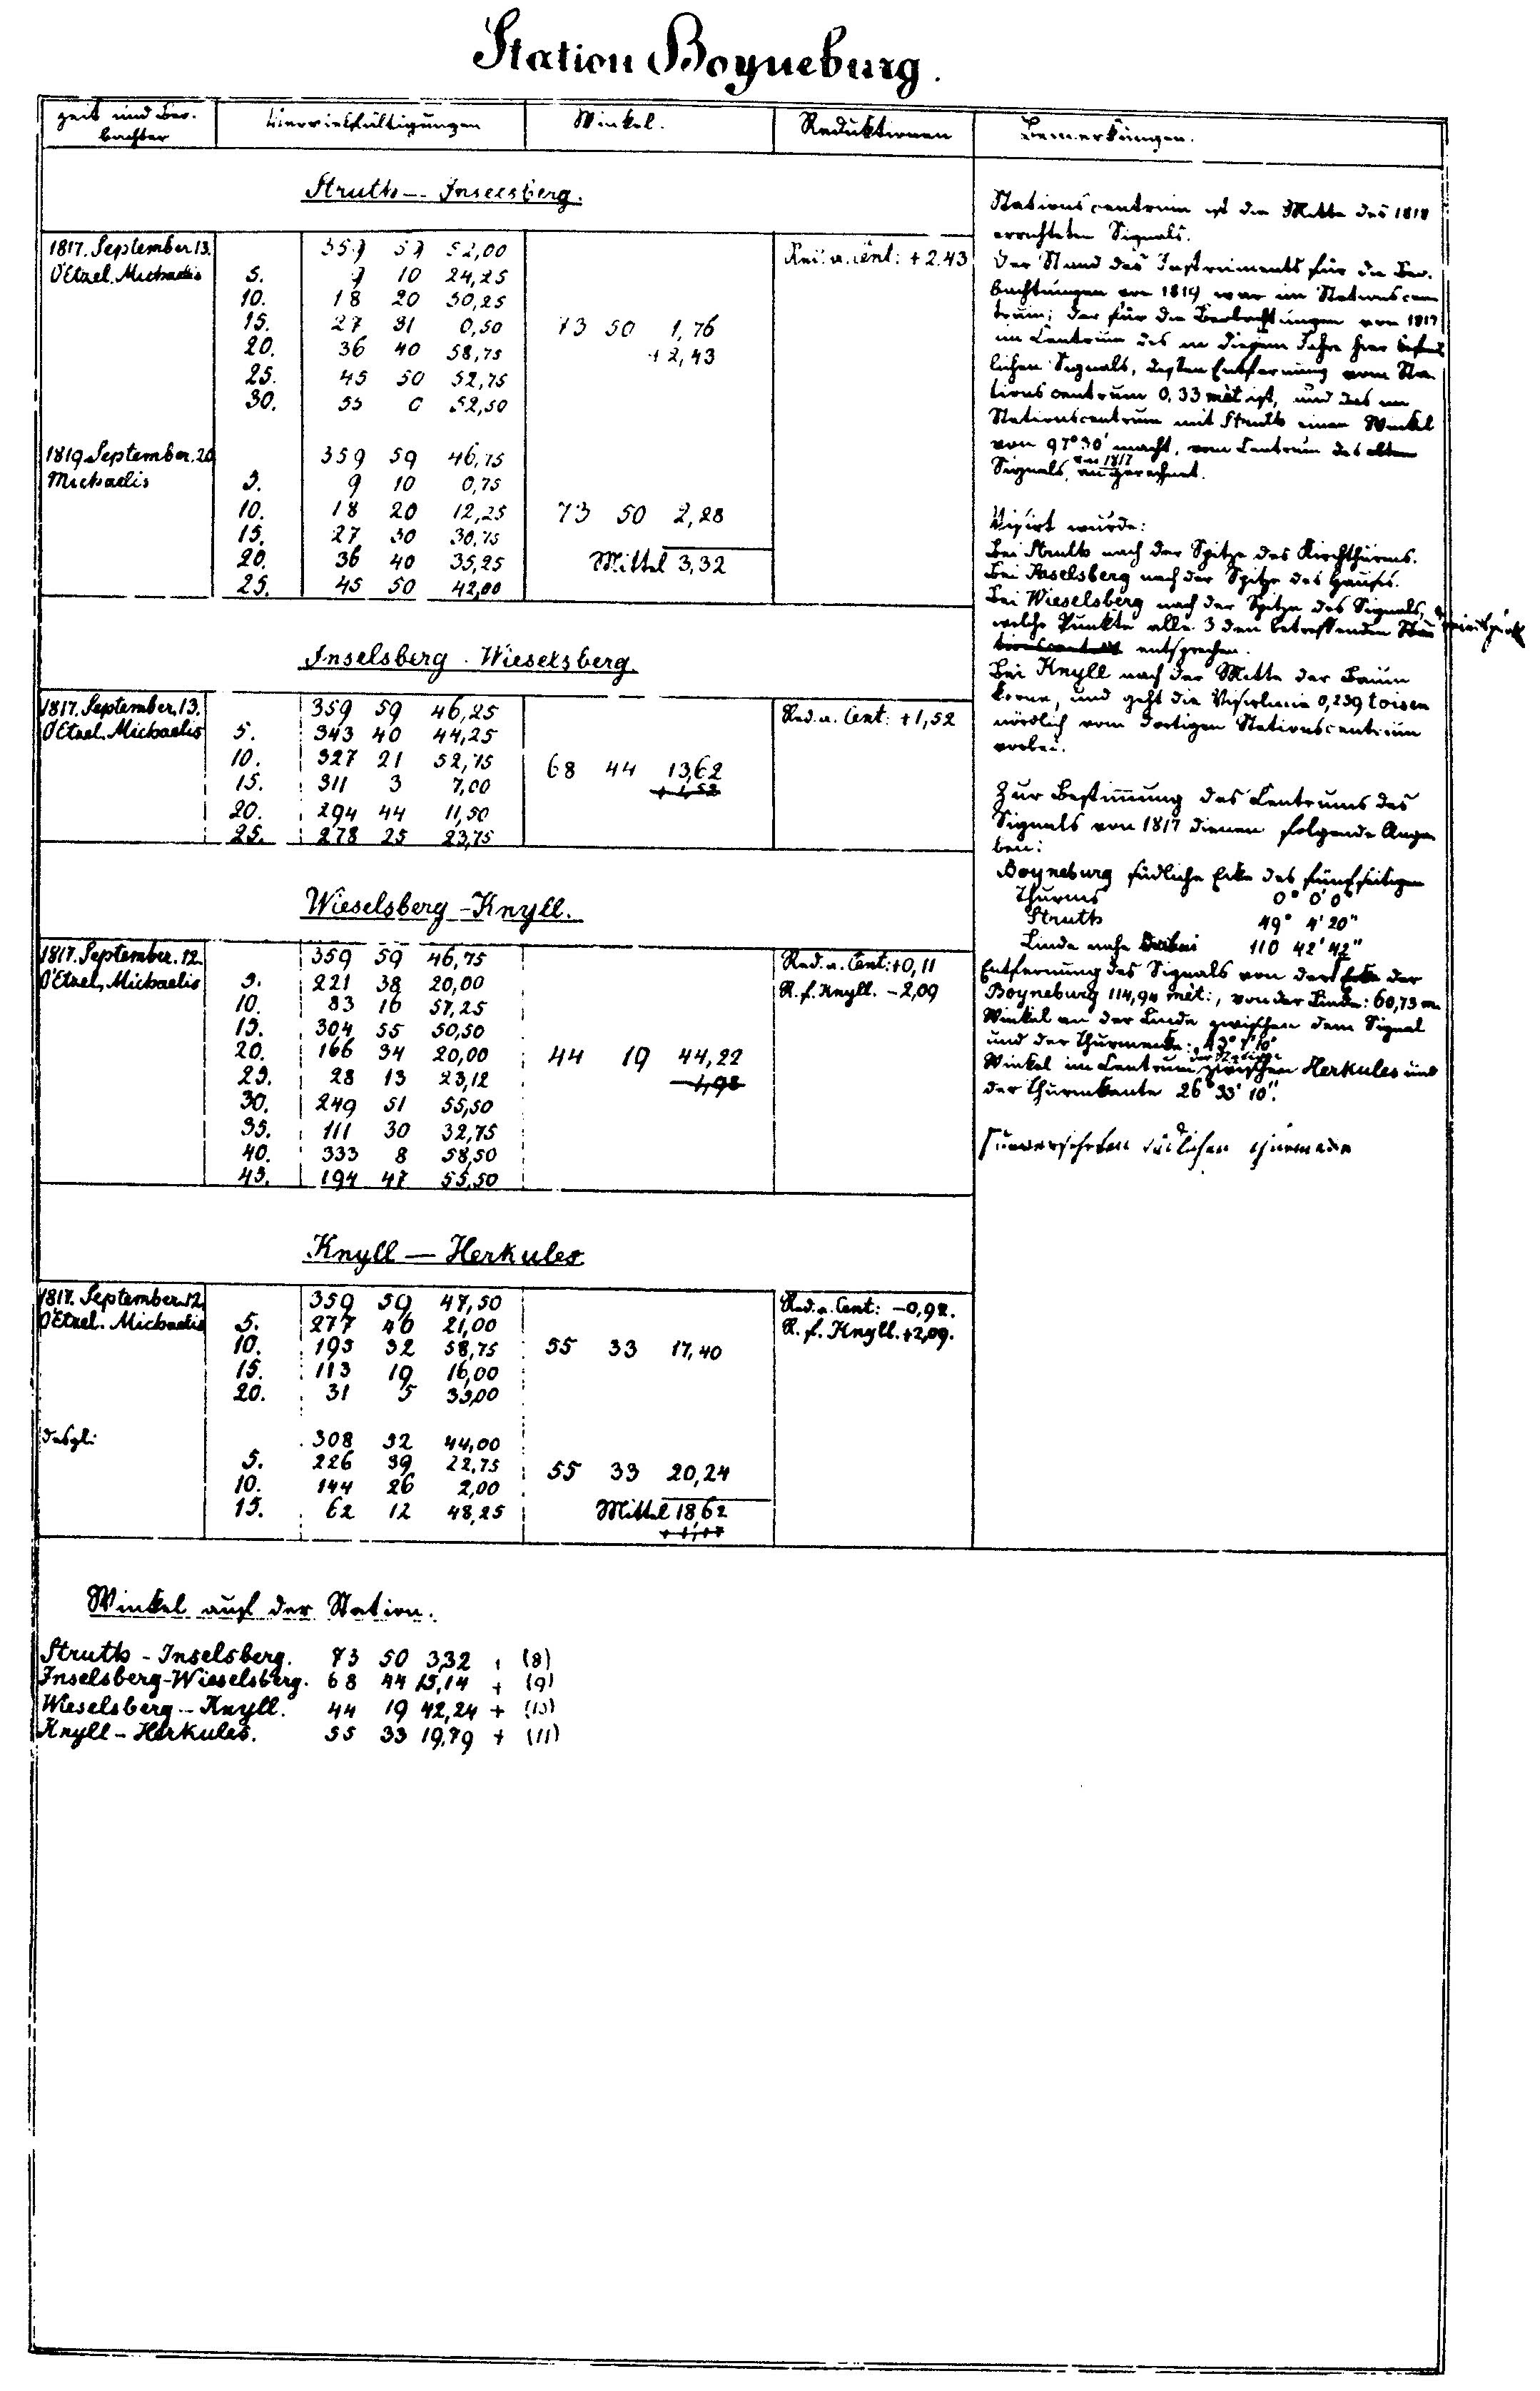 Station Boyneburg.
Zeit und Beo-
bachter
Vervielfältigungen
Winkel.
Reduktionen
Bemerkungen.
Struth — Inselsberg.
1817. September 13. 359 59 52,00 Red. a. Cent: + 2,43
O'Etzel. Michaelis 5. 9 10 24,25
10. 18 20 50,25
15. 27 31 0,50 73 50 1,76
20. 36 40 58,75 + 2,43
25. 45 50 52,75
30. 55 0 52,50
1819 September. 20 359 59 46,75
Michaelis 5. 9 10 0,75
10. 18 20 12,25 73 50 2,28
15. 27 30 30,75
20. 36 40 35,25 Mittel 3,32
25. 45 50 42,00
Inselsberg - Wieselsberg.
1817. September. 13. 359 59 46,25 Red. a. Cent: +1,52
O'Etzel. Michaelis 5. 343 40 44,25
10. 327 21 52,75 68 44 13,62
15. 311 3 7,00 + 1,52
20. 294 44 11,50
25. 278 25 23,75
Wieselsberg - Knyll.
1817. September. 12. 359 59 46,75 Red. a. Cent: +0,11
O'Etzel, Michaelis 5. 221 38 20,00 R. f. Knyll. -2,09
10. 83 16 57,25
15. 304 55 50,50
20. 166 34 20,00 44 19 44,22
25. 28 13 23,12 -1,98
30. 249 51 55,50
35. 111 30 32,75
40. 333 8 58,50
45. 194 47 55,50
Knyll — Herkules
1817. September. 12. 359 59 47,50 Red. a. Cent: -0,92.
O'Etzel. Michaelis 5. 277 46 21,00 R. f. Knyll. +2,09.
10. 195 32 58,75 55 33 17,40
15. 113 19 16,00
20. 31 5 33,00
desgl: 308 52 44,00
5. 226 39 22,75 55 33 20,24
10. 144 26 2,00
15. 62 12 48,25 Mittel 18,62
+ 1,17
Stationscentrum ist die Mitte des 1818
errichteten Signals.
Der Stand des Instruments für die Beo-
bachtungen von 1819 war im Stationscen
trum; der für die Beobachtungen von 1817
im Centrum des in diesem Jahre hier befind
lichen Signals, dessen Entfernung vom Sta-
tionscentrum 0,33 mèt ist, und das im
Stationscentrum mit Struth einen Winkel
von 97° 30' macht, vom Centrum des alten
von 1817
Signals, an gerechnet.
Visirt wurde:
Bei Struth nach der Spitze des Kirchthurms.
Bei Inselsberg nach der Spitze des Hauses.
Bei Wieselsberg nach der Spitze des Signals,
welche Punkte alle 3 den betreffenden Sta
tionscentren entsprechen.
Bei Knyll nach der Mitte der Baum
krone, und geht die Visirlinie 0,239 toisen
nördlich vom dortigen Stationscentrum
vorbei.
Zur Bestimmung des Centrums des
Signals von 1817 dienen folgende Anga
ben:
Boyneburg südliche Ecke des fünfseitigen
Thurms 0° 0' 0"
Struth 49° 4' 20"
Linde nahe dabei 110 42' 42"
Entfernung des Signals von der Ecke der
Boyneburg 114,94 mèt:, von der Linde: 60,73 m.
Winkel an der Linde zwischen dem Signal
und der Thurmecke: 43° 1' 10"
der Station
Winkel im Centrum zwischen Herkules und
der Thurmkante 26° 33' 10".
südlichen Thurmecke
Winkel auf der Station.
Struth - Inselsberg. 73 50 3,32 + (8)
Inselsberg-Wieselsberg. 68 44 15,14 + (9)
Wieselsberg - Knyll. 44 19 42,24 + (10)
Knyll - Herkules. 55 33 19,79 + (11)